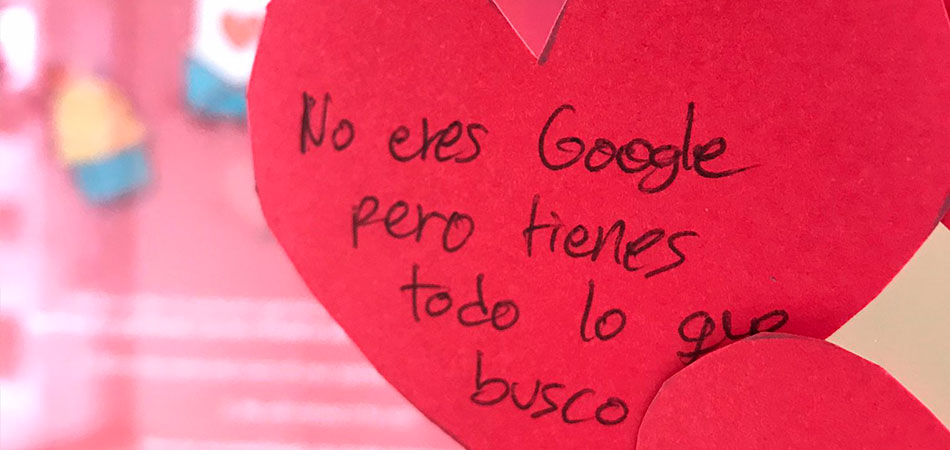 No eres Google
pero tienes
todo lo que
busco